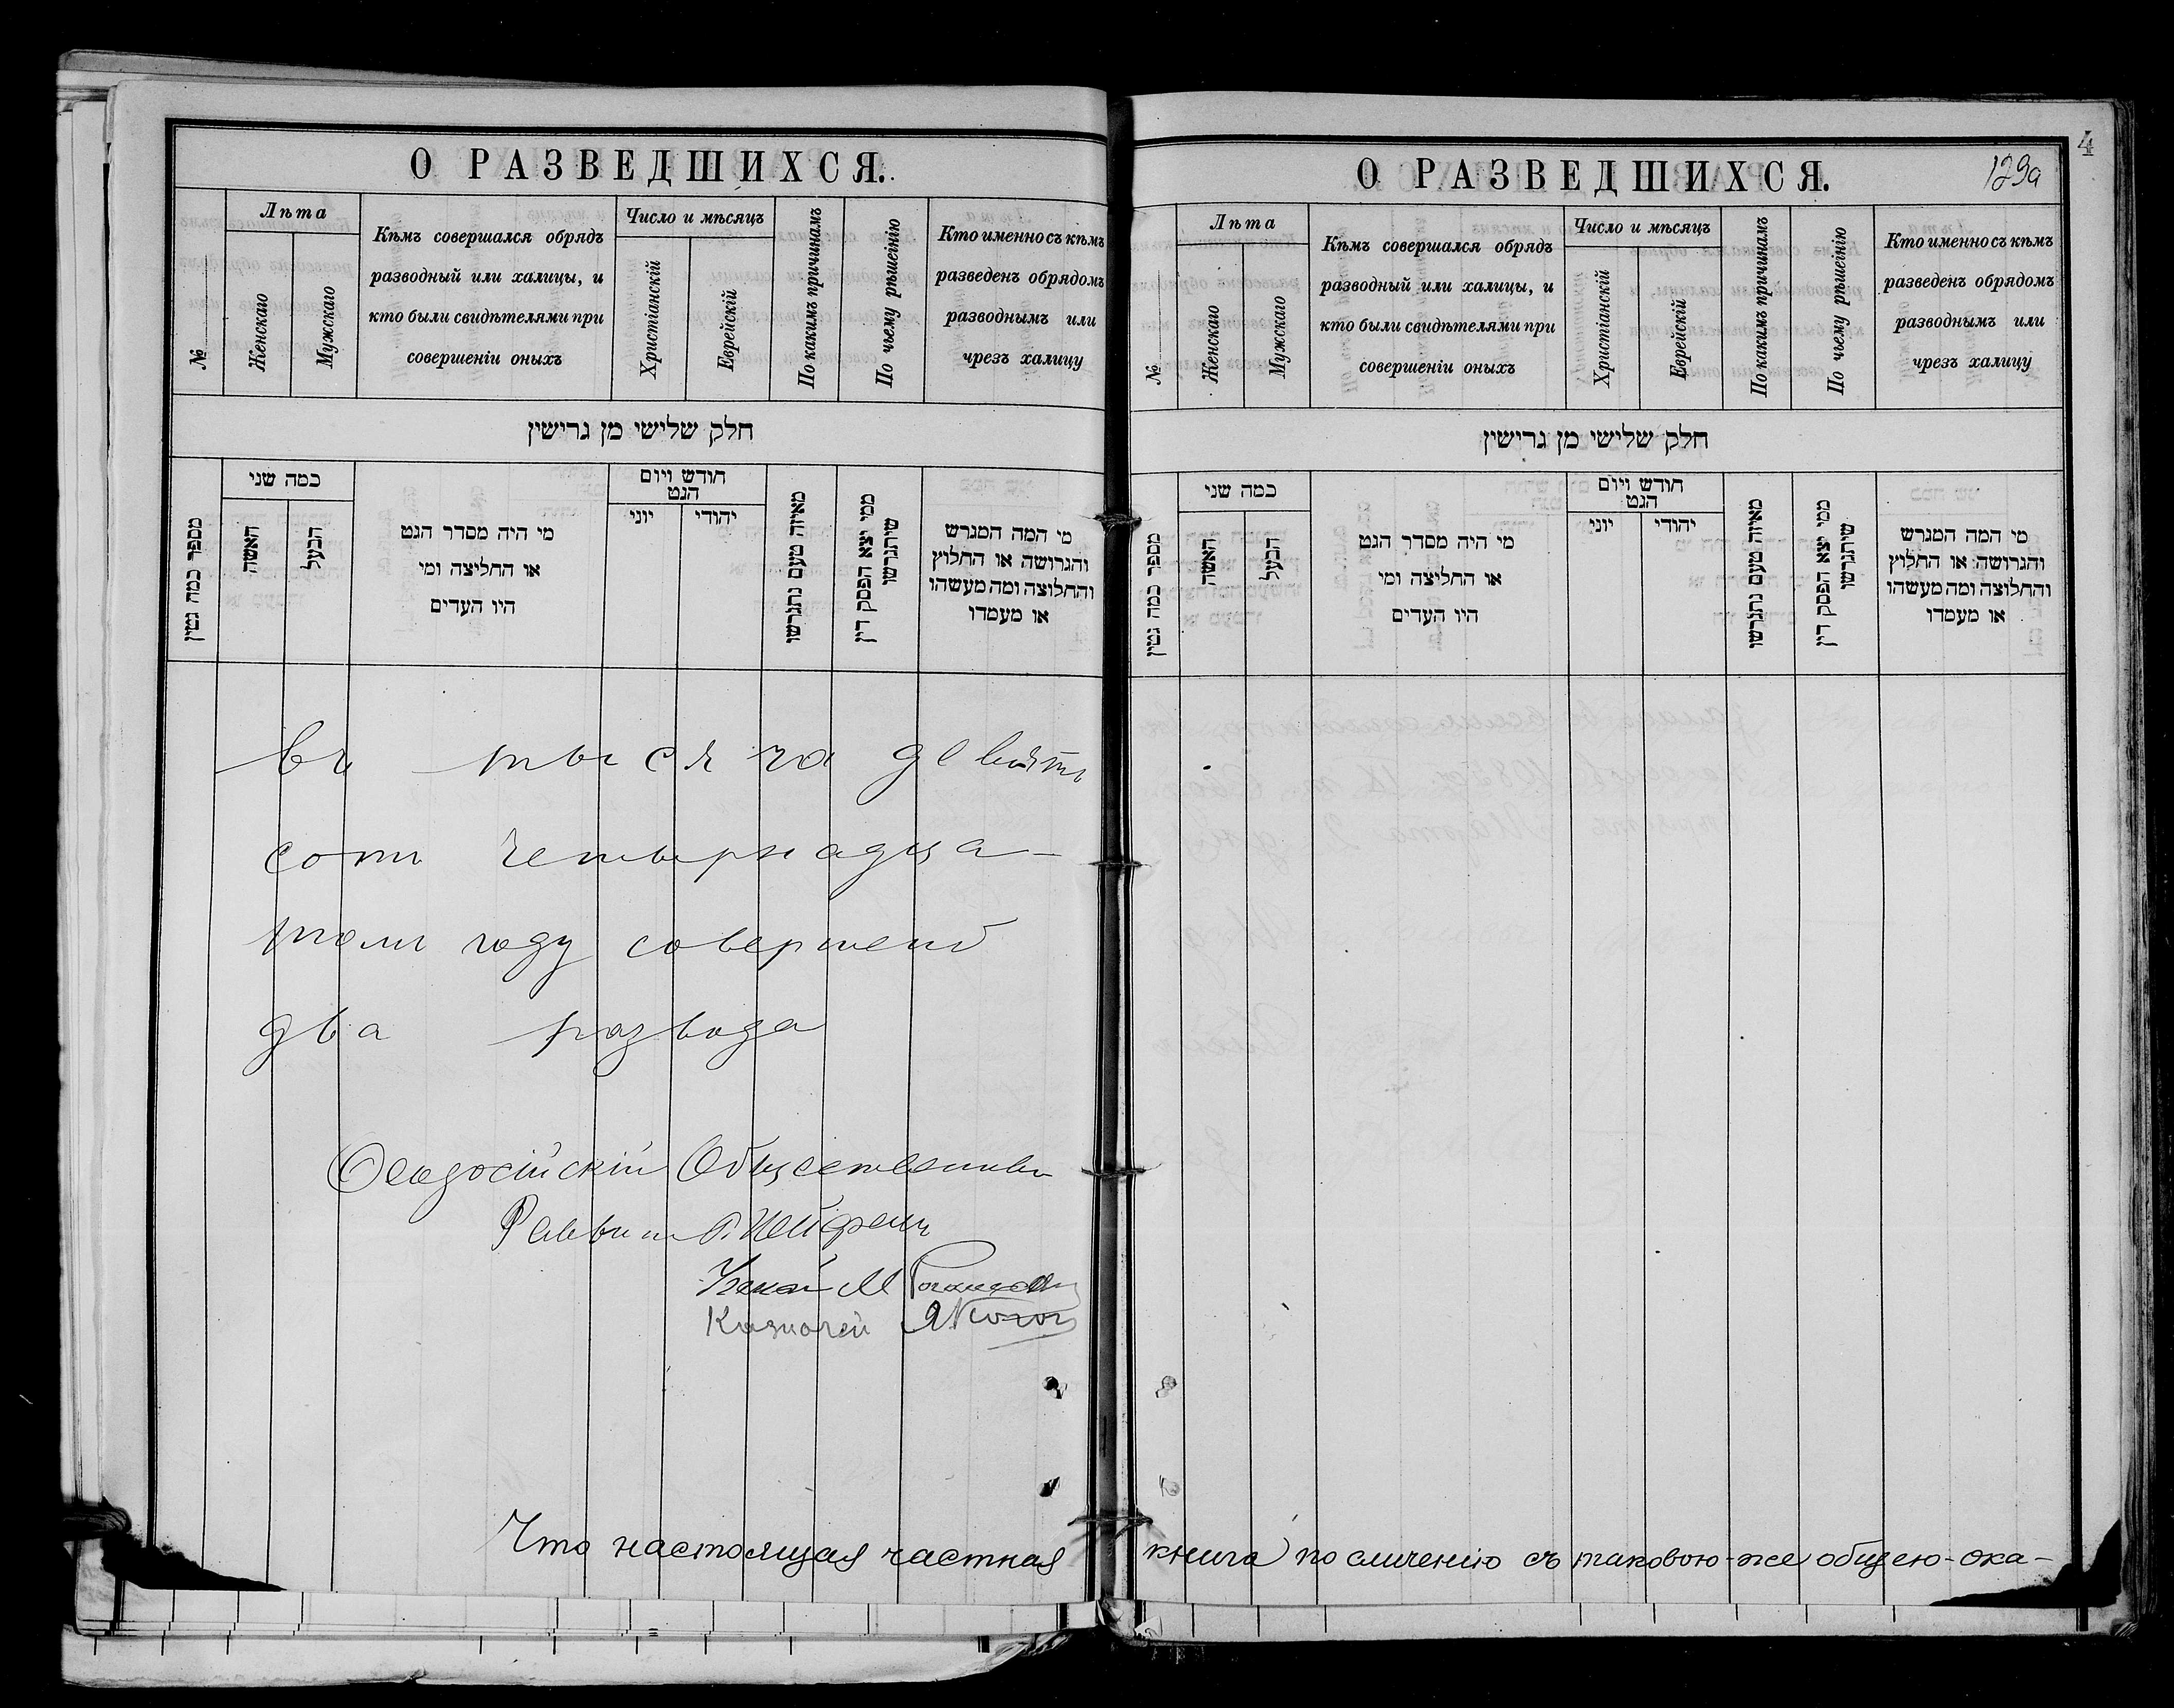 О РАЗВЕДШИХСЯ.
№
Лѣта
Женскаго
Мужскаго
Кѣмъ совершался обрядъ
разводный или халицы, и
кто были свидѣтелями при
совершеніи оныхъ
Число и мѣсяцъ
Христіанскій
Еврейскій
По какимъ причинамъ
По чьему рѣшенію
Кто именно съ кѣмъ
разведенъ обрядомъ
разводнымъ или
чрезъ халицу
חלק שלישי מן גרישין
מספר כמה גטין
כמה שני
האשה
הבעל
מי היה מסדר הגט
או החליצה ומי
היו העדים
חודש ויום
הגט
יוני
יהודי
מאיזה טעם נתגרשו
ממי יצא הפסק דין
שיתגרשו
מי המה המגרש
והגרושה או החלוץ
והחלוצה ומה מעשהו
או מעמדו
въ тысяча девять
сотъ четырнадца-
томъ году совершено
два развода
Ѳеодосійскій Общественный
Раввинъ
Казначей
Что настоящая частная
О РАЗВЕДШИХСЯ.
129а
4
№
Лѣта
Женскаго
Мужскаго
Кѣмъ совершался обрядъ
разводный или халицы, и
кто были свидѣтелями при
совершеніи оныхъ
Число и мѣсяцъ
Христіанскій
Еврейскій
По какимъ причинамъ
По чьему рѣшенію
Кто именно съ кѣмъ
разведенъ обрядомъ
разводнымъ или
чрезъ халицу
חלק שלישי מן גרישין
מספר כמה גטין
כמה שני
האשה
הבעל
מי היה מסדר הגט
או החליצה ומי
היו העדים
חודש ויום
הגט
יוני
יהודי
מאיזה טעם נתגרשו
ממי יצא הפסק דין
שיתגרשו
מי המה המגרש
והגרושה או החלוץ
והחלוצה ומה מעשהו
או מעמדו
книга по сличенію съ таковою-же общею-ока-